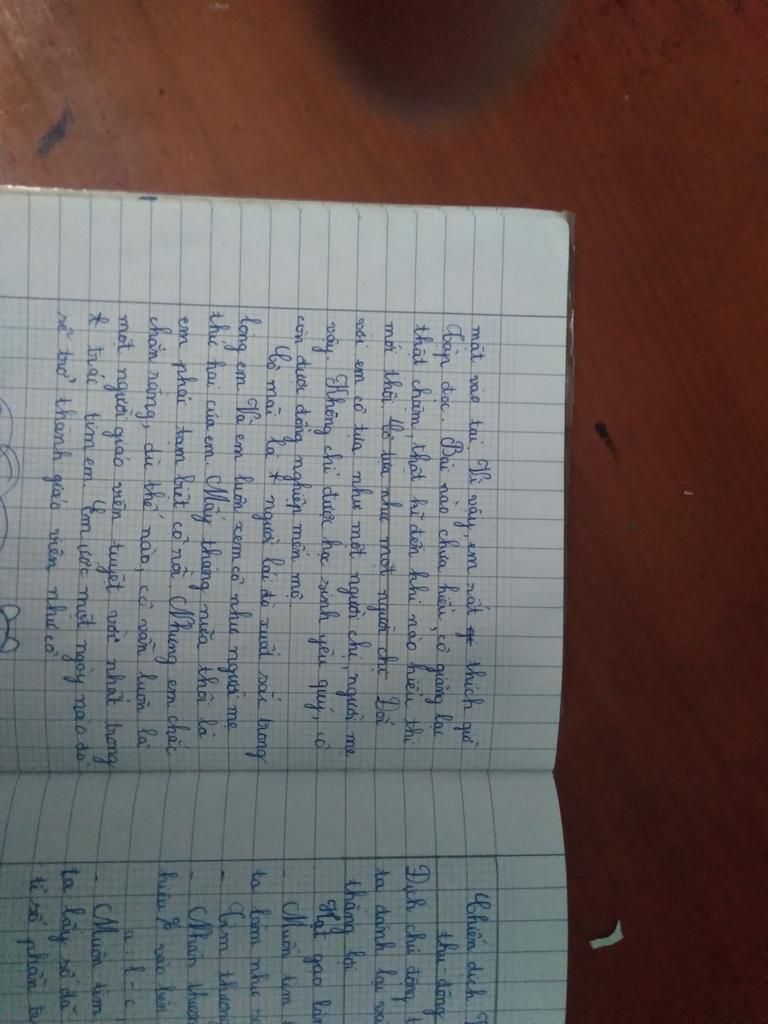 mật vào tai. Vì vậy, em rất thích giờ
tập đọc. Bài nào chưa hiểu, cô giảng lại
thật chậm, thật kĩ đến khi nào hiểu thì
mới thôi. Cô tựa như một người chị. Đối
với em cô tựa như một người chị, người mẹ
vậy. Không chỉ được học sinh yêu quý, cô
còn được đồng nghiệp mến mộ.
Cô mãi là người lái đò xuất sắc trong
lòng em. Và em luôn xem cô như người mẹ
thứ hai của em. Mấy tháng nữa thôi là
em phải tạm biết cô rồi. Nhưng em chắc
chắn rằng, dù thế nào, cô vẫn luôn là
một người giáo viên tuyệt vời nhất trong
trái tim em. Em ước một ngày nào đó
sẽ trở thành giáo viên như cô
Chiến dịch
thu-đông
Dịch chủ động
ta đánh lại
thắng lợi
Hạt gạo làng
- Muốn tìm
ta làm như
- Tìm thương
- Nhân thương
hiệu % vào bên
- Muốn tìm
ta lấy số đó
tỉ số phần